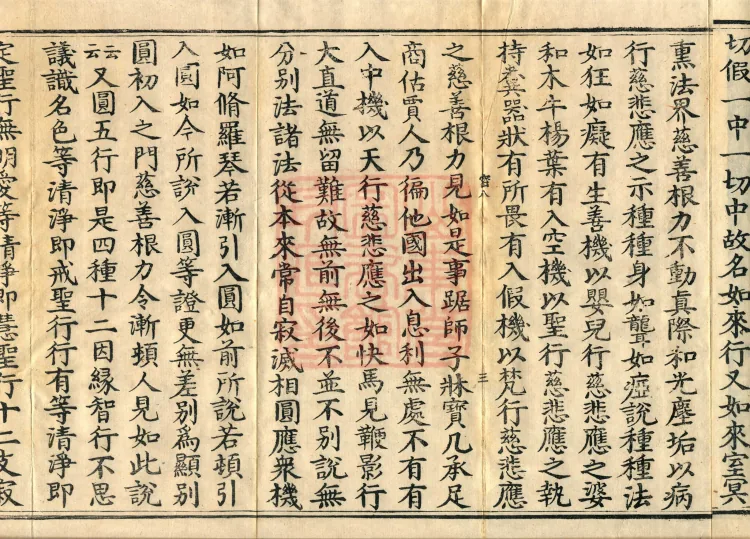 切假一中一切中故名如來行又如來室冥
熏法界慈善根力不動真際和光塵垢以病
行慈悲應之示種種身如聾如瘂說種種法
如狂如癡有生善機以嬰兒行慈悲應之婆
和木牛楊葉有入空機以聖行慈悲應之執
持糞器狀有所畏有入假機以梵行慈悲應
之慈善根力見如是事踞師子牀寳几承足
商估賈人乃徧他國出入息利無處不有有
入中機以天行慈悲應之如快馬見鞭影行
大直道無留難故無前無後不並不別說無
分別法諸法從本來常自寂滅相圓應衆機
如阿脩羅琴若漸引入圓如前所說若頓引
入圓如今所說入圓等證更無差別為顯別
圓初入之門慈善根力令漸頓人見如此說
云云又圓五行即是四種十二因緣智行不思
議識名色等清淨即戒聖行行有等清淨即
定聖行無明愛等清淨即慧聖行十二支寂